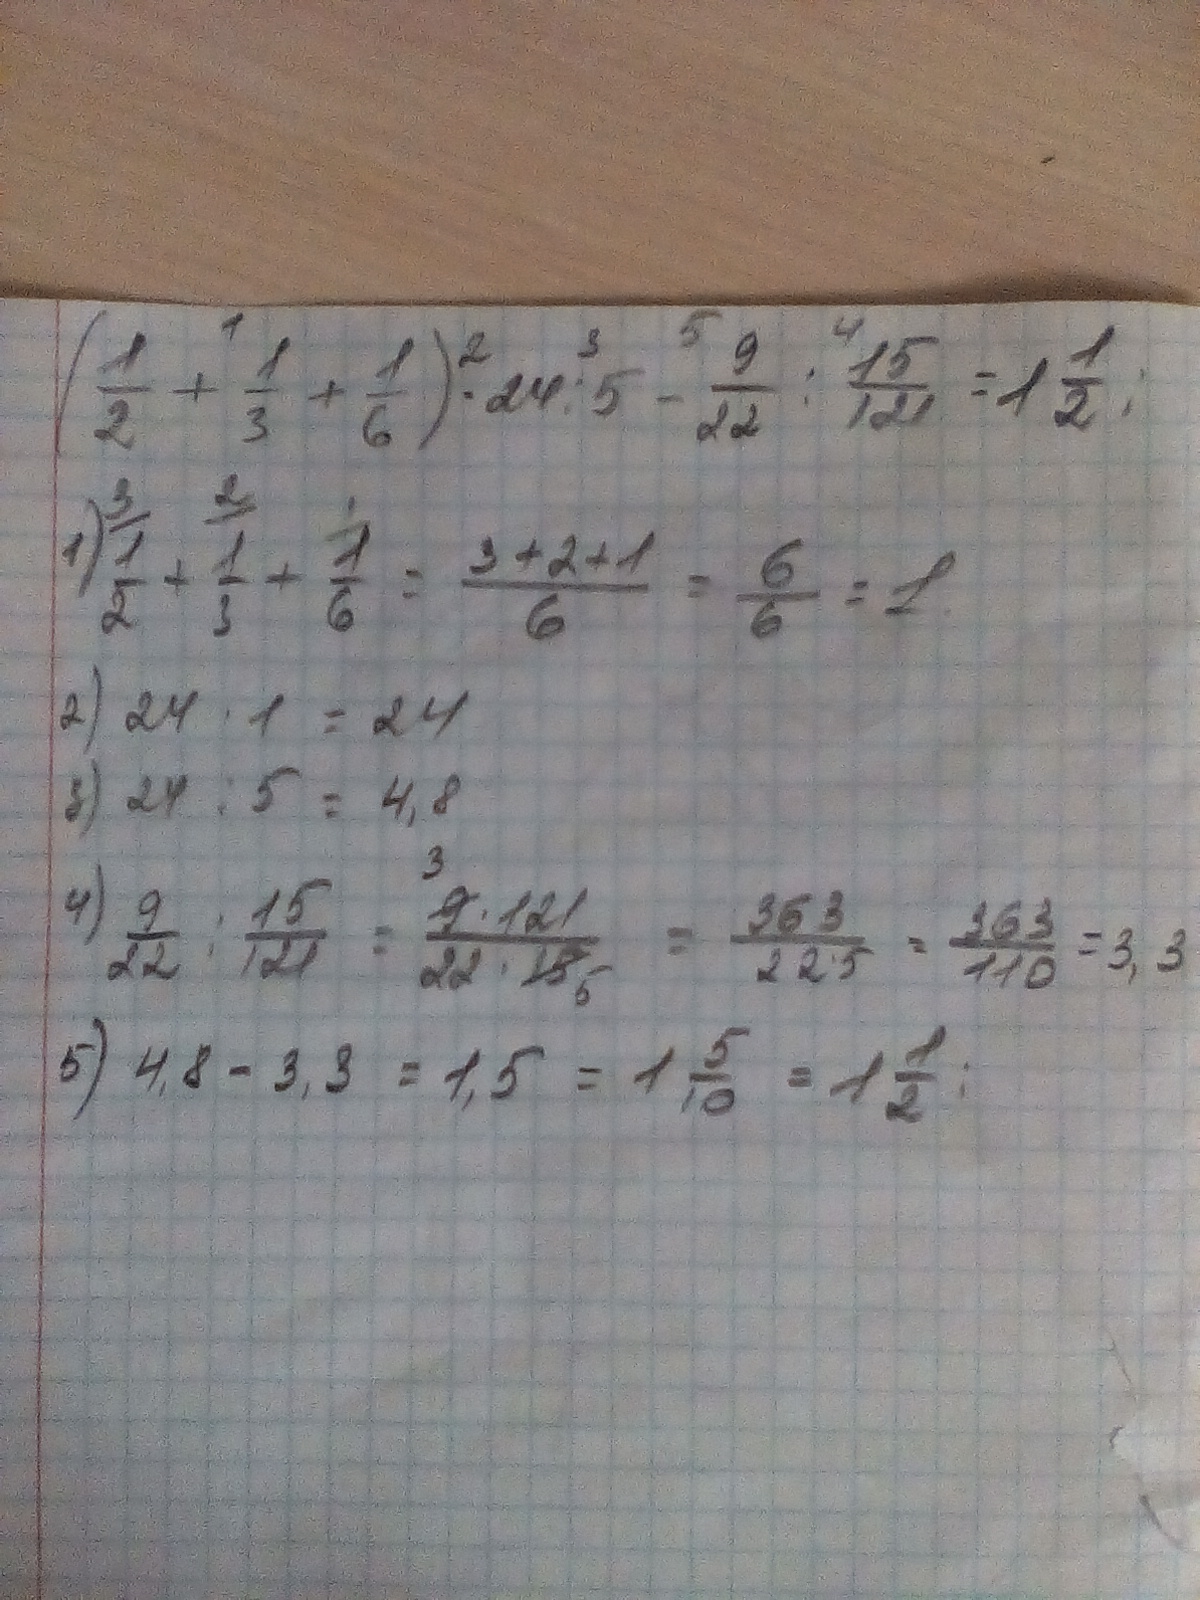 (1/2 + 1/3 + 1/6) · 24 : 5 - 9/22 : 15/121 = 1 1/2;
1) 1/2 + 1/3 + 1/6 = (3+2+1)/6 = 6/6 = 1.
2) 24 · 1 = 24
3) 24 : 5 = 4,8
4) 9/22 : 15/121 = (9·121)/(22·15) = 363/(22·5) = 363/110 = 3,3
5) 4,8 - 3,3 = 1,5 = 1 5/10 = 1 1/2;